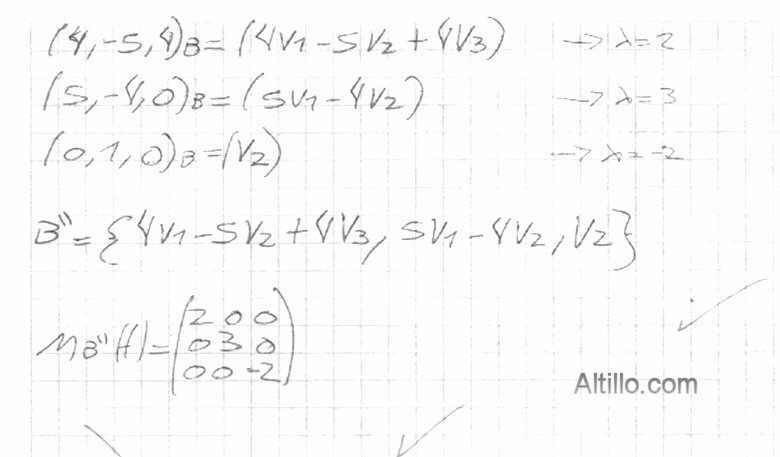 (4,-5,4)B=(4V1-5V2+4V3) → λ=2
(5,-4,0)B=(5V1-4V2) → λ=3
(0,1,0)B=(V2) → λ=-2
B"={4V1-5V2+4V3, 5V1-4V2, V2}
MB"(f)=(2 0 0
0 3 0
0 0 -2)
Altillo.com